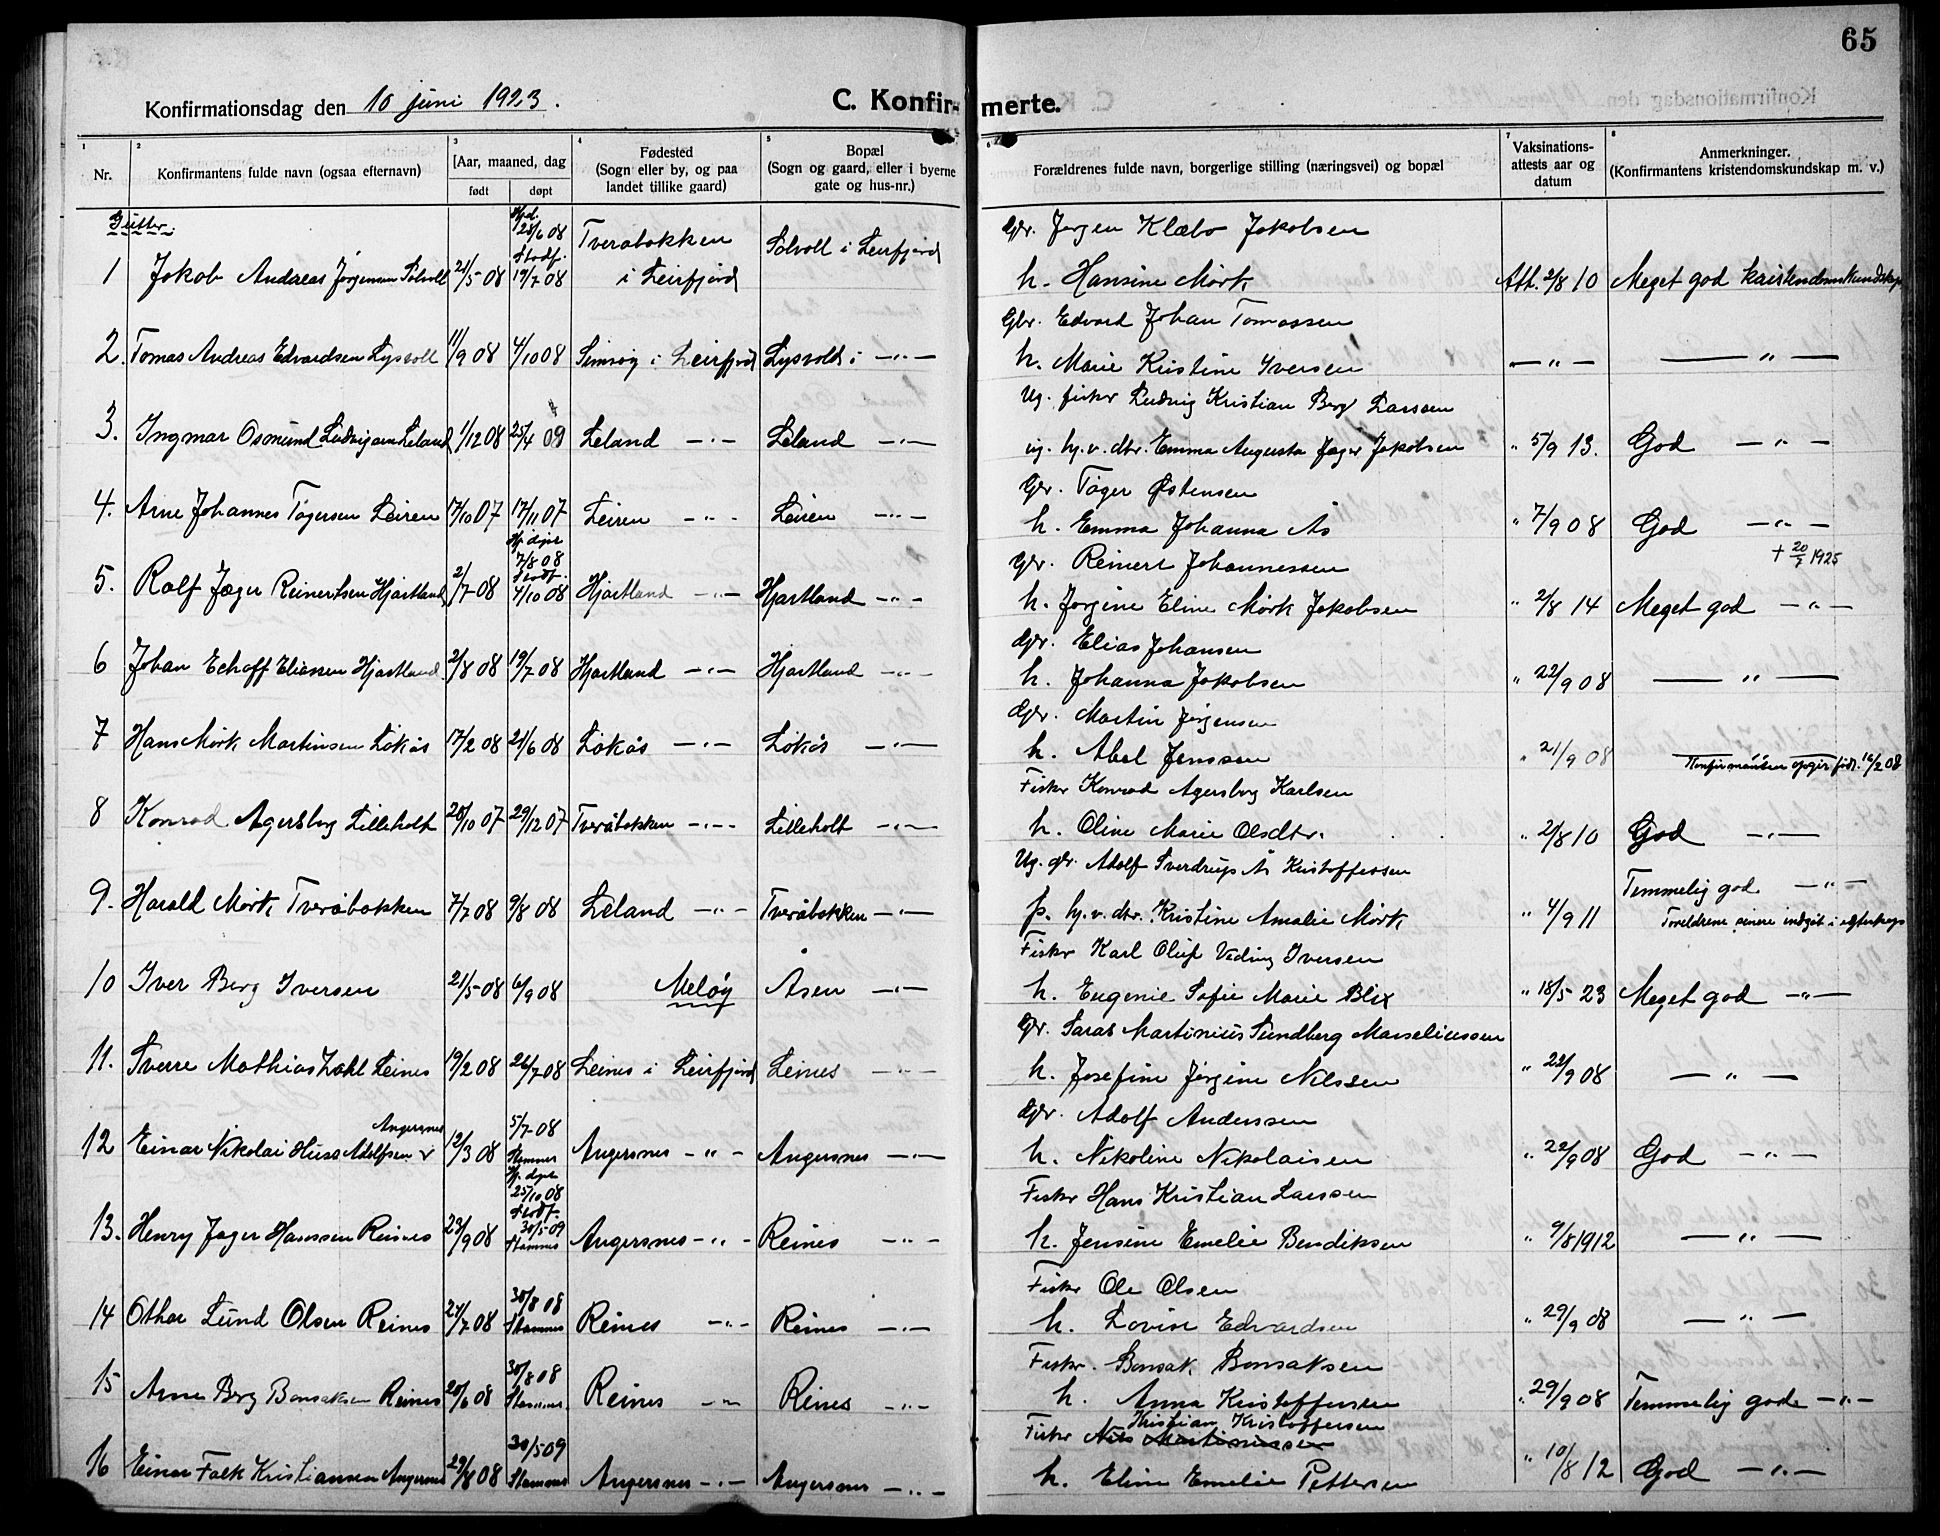 65
Konfirmationsdag den 10 juni 1923.
C. Konfirmerte.
1 2 3 4 5 6 7 8
Nr. Konfirmantens fulde navn (ogsaa efternavn) [Aar, maaned, dag født døpt Fødested (Sogn eller by, og paa landet tillike gaard) Bopæl (Sogn og gaard, eller i byerne gate og hus-nr.) Forældrenes fulde navn, borgerlige stilling (næringsvei) og bopæl Vaksinations-attests aar og datum Anmerkninger. (Konfirmantens kristendomskundskap m. v.)
Gutter.
Hjd. 28/6 08 Gbr. Jørgen Klæbo Jakobsen
1 Jakob Andreas Jørgensen Solvoll 21/5 08 Stadf. 19/7 08 Tveråbakken i Leirfjord Solvoll i Leirfjord h. Hansine Mørk Att. 2/8 10 Meget god kristendomskundskap
Gbr. Edvard Johan Tomassen
2. Tomas Andreas Edvardsen Lysvoll 11/9 08 4/10 08 Simsøy i Leirfjord Lysvold i — " — h. Marie Kristine Iversen — " — — " —
Ug. fisker Ludvig Kristian Berg Larssen
3. Ingmar Osmund Ludvigsen Leland 1/12 08 25/4 09 Leland — " — Leland — " — ug. hj.v. dtr. Emma Augusta Jæger Jakobsen " 5/9 13. God — " —
Gbr. Tøger Østensen
4. Arne Johannes Tøgersen Leiren 17/10 07 17/11 07 Leiren — " — Leiren — " — h. Emma Johanna Ås " 7/9 08 God — " —
Hj. døpt 7/8 08 Gbr. Reinert Johannessen + 20/7 1925
5. Rolf Jæger Reinertsen Hjartland 2/7 08 Stadf. 4/10 08 Hjartland — " — Hjartland — " — h. Jørgine Eline Mørk Jakobsen " 2/8 14 Meget god — " —
Gbr. Elias Johansen
6 Johan Echoff Eliassen Hjartland 2/8 08 19/7 08 Hjartland — " — Hjartland — " — h. Johanna Jakobsen " 22/9 08 — " —
Gbr. Martin Jørgensen
7 Hans Mørk Martinsen Løkås 17/2 08 21/6 08 Løkås — " — Løkås — " — h. Abel Jenssen " 21/9 08 — " — Konfirmanten opgir født 16/2 08
Fisker Konrad Agersborg Karlsen
8 Konrad Agersborg Lilleholt 28/10 07 29/12 07 Tveråbakken — " — Lilleholt — " — h. Oline Marie Olsdtr. " 2/8 10 God — " —
Ug. gbr. Adolf Sverdrup Ås Kristoffersen Temmelig god — " —
9. Harald Mørk Tveråbakken 7/7 08 9/8 08 Leland — " — Tveråbakken — " — p. hj.v. dtr. Kristine Amalie Mørk " 4/9 11 Foreldrene senere indgåt i egteskap
Fisker Karl Oluf Veding Iversen
10 Iver Berg Iversen 21/5 08 6/9 08 Meløy Åsen — " — h. Eugenie Sofie Marie Blix " 18/5 23 Meget god — " —
Gbr. Saras Martinius Sundberg Marseliussen
11. Sverre Mathias Zahl Leines 19/2 08 26/7 08 Leines i Leirfjord Leines — " — h. Josefine Jørgine Nilssen " 22/9 08 — " —
Angersnes 5/7 08 Gbr. Adolf Anderssen
12 Einar Nikolai Huss Adolfsen 12/3 08 Stamnes Angersnes — " — Angersnes — " — h. Nikoline Nikolaisen " 22/9 08 God — " —
Hj. døpt 25/10 08 Fisker Hans Kristian Larssen
13. Henry Jæger Hanssen Reines 23/9 08 Stadf. 30/5 09 Stamnes Angersnes — " — Reines — " — h. Jensine Emelie Bendiksen " 9/8 1912 — " —
30/8 08 Fisker Ole Olsen
14 Othar Lund Olsen Reines 27/7 08 Stamnes Reines — " — Reines — " — h. Lovise Edvardsen " 29/9 08 — " —
30/8 08 Fisker. Bonsak Bonsaksen
15 Arne Berg Bonsaksen Reines 20/6 08 Stamnes Reines — " — Reines — " — h. Anna Kristoffersen " 29/9 08 Temmelig god — " —
30/5 09 Fisker Nils Martinussen Kristian Kristoffersen
16 Einar Falk Kristiansen Angersnes 29/8 08 Stamnes Angersnes — " — Angersnes — " — h. Eline Emelie Pettersen " 10/8 12 God — " —